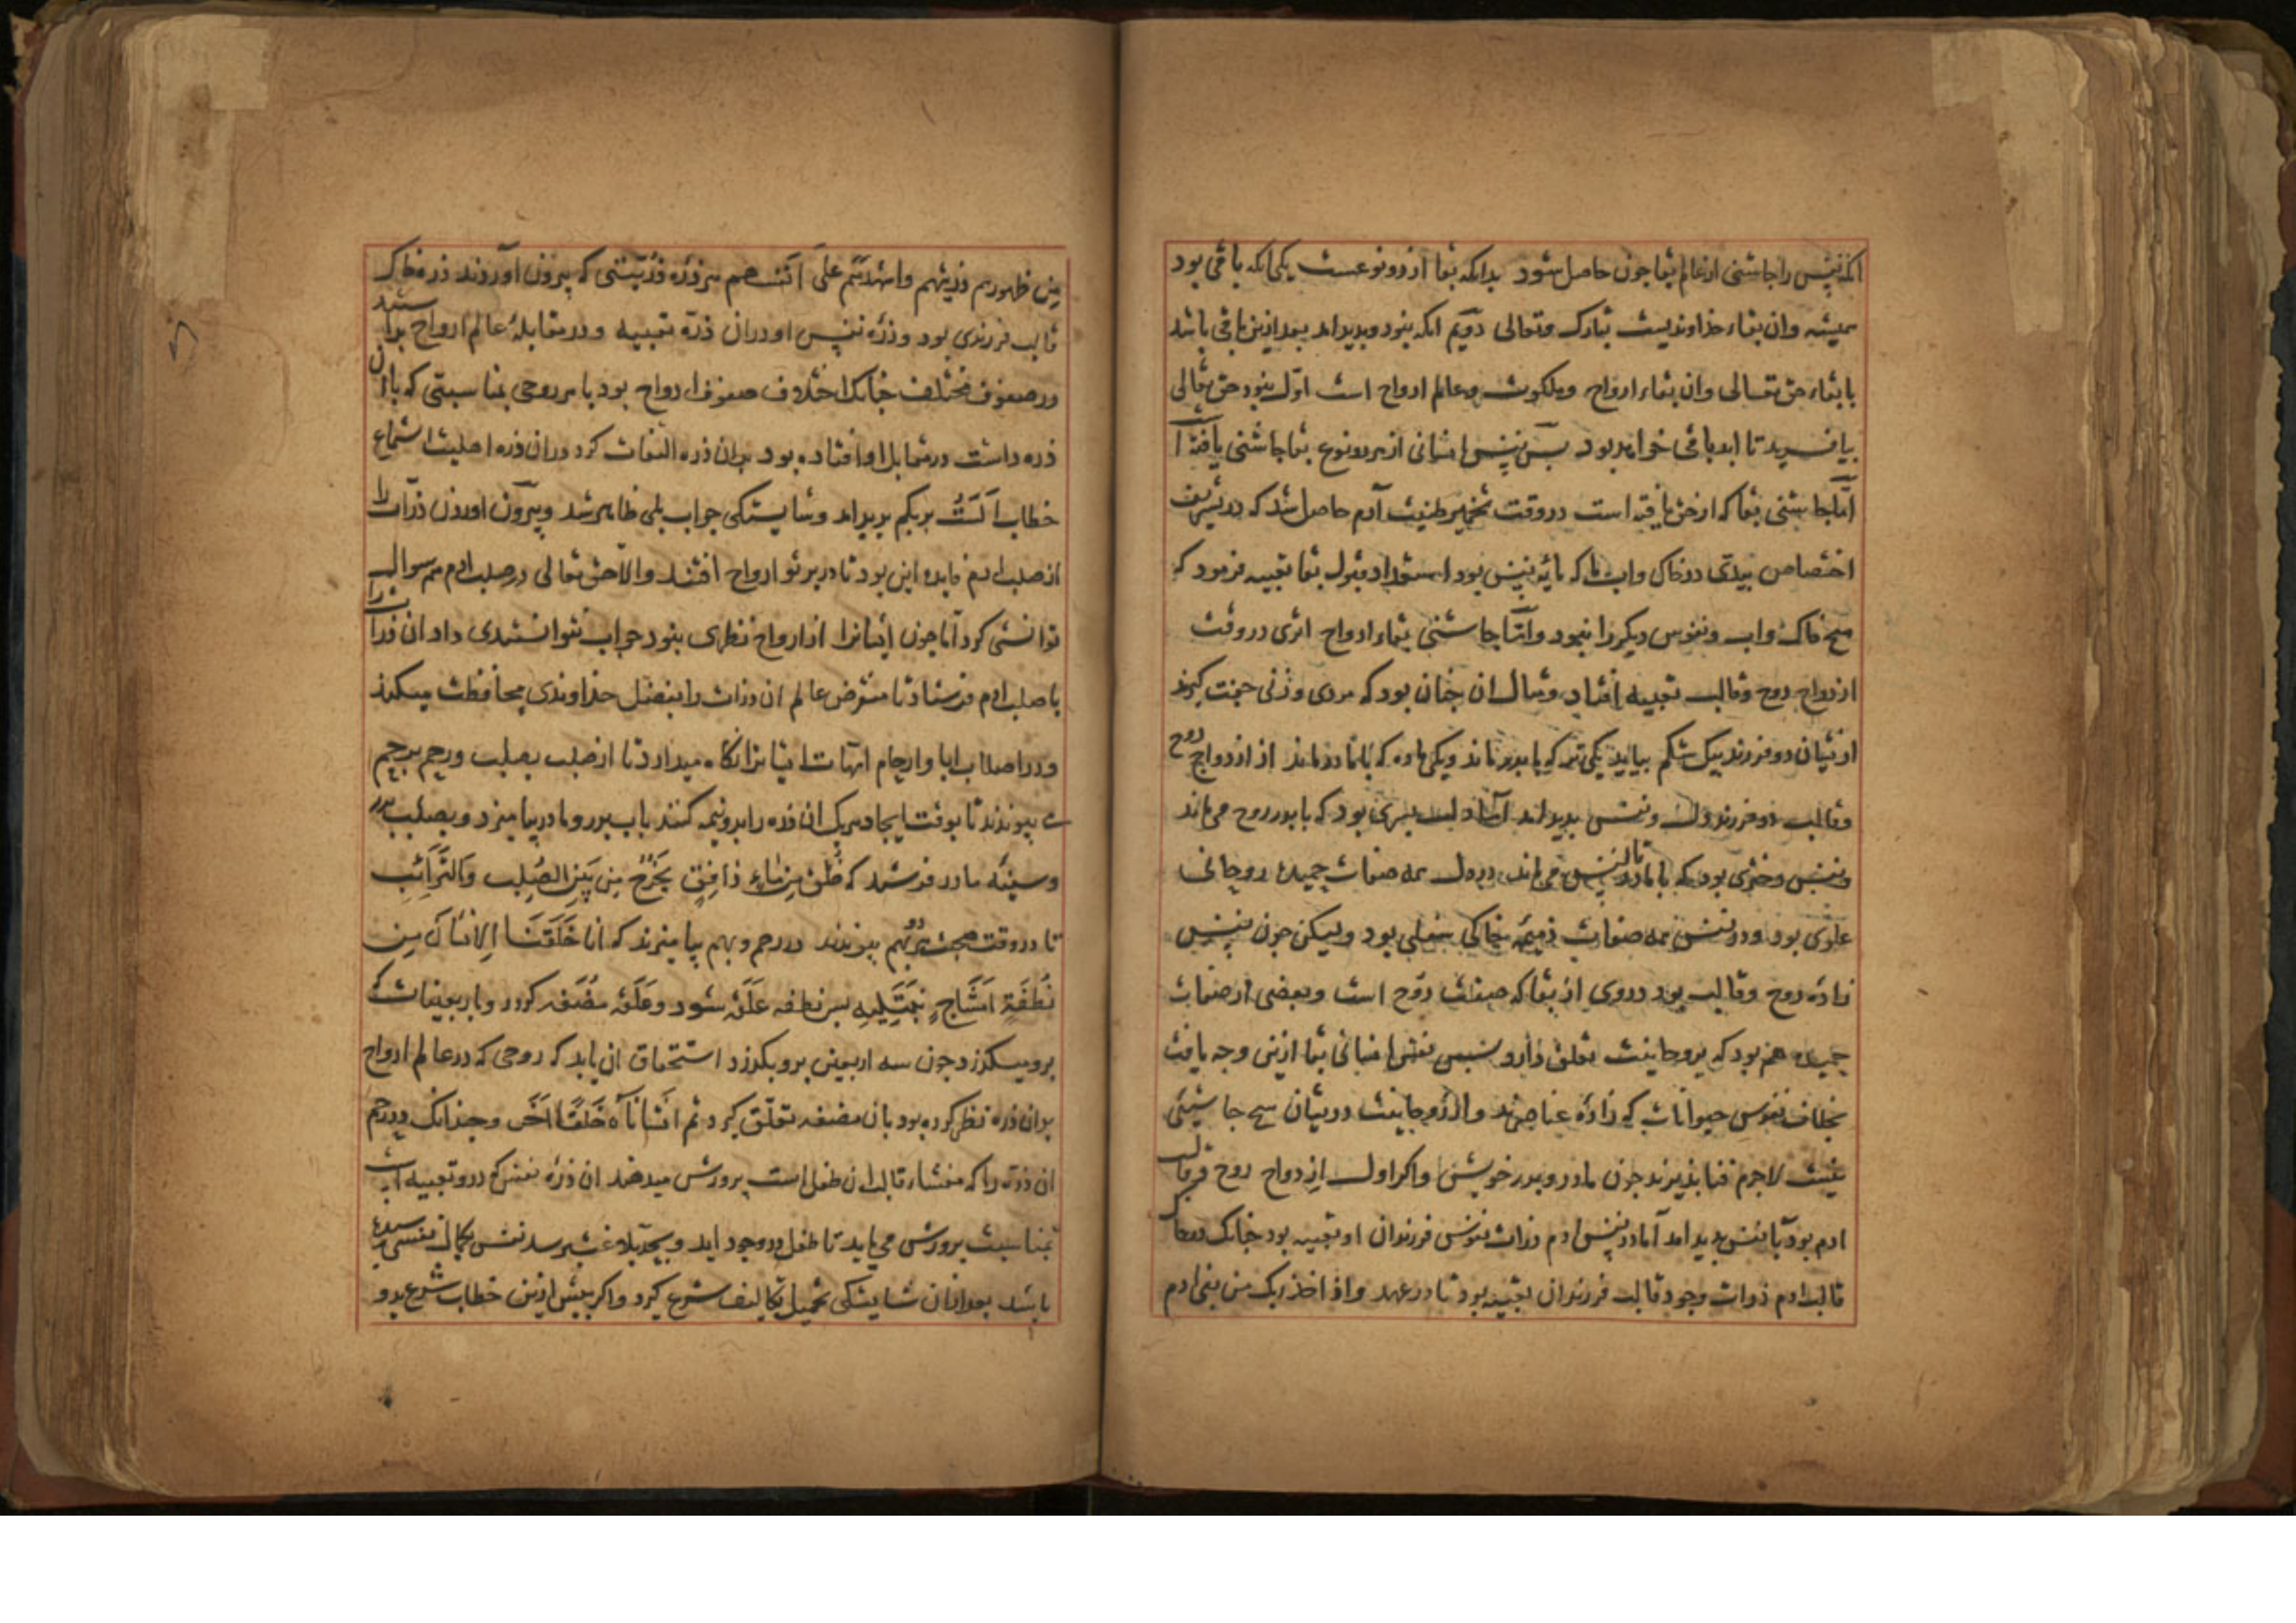 انکه نفس را چاشنی از عالم بقا چون حاصل شود بدانکه بقا از دو نوعست یکی انکه باقی بود
همیشه وان بقاء خداوندیست تبارک وتعالی دویم انکه نبود و بدید امد بعد ازین باقی باشد
با بقاء حق تعالی وان بقاء ارواح وملکوت وعالم ارواح است اول نبود حق تعالی
بیافرید تا ابد باقی خواهد بود پس نفس انسانی از هر دو نوع بقا چاشنی یافته است
اما چاشنی بقا که از حق یافته است در وقت تخمیر طینت آدم حاصل شد که در تشریف
اختصاص بیدی در خاک واب پاک که مایه نفس بود استعداد قبول بقا تعبیه فرمود که
هیچ خاک واب ونفوس دیگر را نبود واما چاشنی بقاء ارواح اثری در وقت
ازدواج روح وقالب تعبیه افتاد ومثال ان چنان بود که مردی وزنی جفت گیرند
ازیشان دو فرزند بیک شکم بیاید یکی نر که با پدر ماند ویکی ماده که با مادر ماند از ازدواج روح
وقالب دو فرزند دل ونفس بدید امد اما دل پسری بود که با پدر روح می ماند
ونفس دختری بود که با مادر قالب می ماند در دل همه صفات حمیدهٔ روحانی
علوی بود ودر نفس همه صفات ذمیمه خاکی سفلی بود ولیکن چون نفس
زادهٔ روح وقالب بود در وی از بقا که صفت روح است وبعضی از صفات
حمیده هم بود که بروحانیت تعلق دارد پس نفس انسانی بقا ازین وجه یافت
بخلاف نفوس حیوانات که زادهٔ عناصرند واز روحانیت دریشان هیچ چاشنی
نیست لاجرم فنا پذیرند چون مادر وپدر خویش واگر اول ازدواج روح وقالب
ادم بود تا نفس بدید امد اما در نفس ادم ذرات نفوس فرزندان او تعبیه بود چنانک در خاک
قالب ادم ذرات وجود قالب فرزندان تعبیه بود تا در عهد واذ اخذ ربک من بنی ادم
من ظهورهم ذریتهم واشهدهم علی انفسهم هر ذرّه ذریتی که بیرون آوردند ذره خاک
قالب فرزندی بود وذرّه نفس او در ان ذرّه تعبیه ودر مقابلهٔ عالم ارواح بداشتند
در صفوف مختلف چنانک اختلاف صفوف ارواح بود با هر روحی بمناسبتی که با ان
ذره داشت در مقابل او افتاده بود بدان ذره التفات کرد در ان ذره اهلیت استماع
خطاب اَلَستُ بربکم بدید امد وشایستگی جواب بلی ظاهر شد وبیرون اوردن ذرّات را
از صلب ادم فایده این بود تا در پرتو ارواح افتند والا حق تعالی در صلب ادم هم سوال
توانستی کرد اما چون ایشانرا از ارواح نظری نبود جواب نتوانستندی داد ان ذرات را
با صلب ادم فرستاد تا منقرض عالم ان ذرات را بفضل خداوندی محافظت میکند
ودر اصلاب ابا وارحام امهات ایشانرا نگاه میدارد تا از صلب بصلب ورحم برحم
می پیوندند تا بوقت ایجاد هریک ان ذره را بدو نیمه کنند باب پدر ومادر بیامیزد وبصلب پدر
وسینه مادر فرستد که خُلِقَ مِن مَاءٍ دَافِقٍ یَخرُجُ مِن بَینِ الصُلبِ وَالتَرَائِبِ
تا در وقت صحبت هر دو بهم پیوندند در رحم وبهم بیامیزند که انا خَلَقنَا الاِنسَانَ مِن
نُطفَةٍ اَمشَاجٍ نَبتَلِیهِ پس نطفه علقه شود وعلقه مضغه گردد وباربعینات که
برو میگذرد چون سه اربعین برو بگذرد استحقاق ان یابد که روحی که در عالم ارواح
بدان ذره نظر کرده بود بان مضغه تعلّق گیرد ثم انشاناه خَلقًا اخَر وچندانک در رحم
ان ذره را که منشاء قالب ان طفل است پرورش میدهند ان ذرّه نفس که درو تعبیه است
بمناسبت پرورش می یابد تا طفل در وجود اید وبحد بلاغت برسد نفس بکمال نفسی رسیده
باشد بعد ازان شایستگی تحمیل تکالیف شرع گیرد واگر پیش ازین خطاب شرع بدو